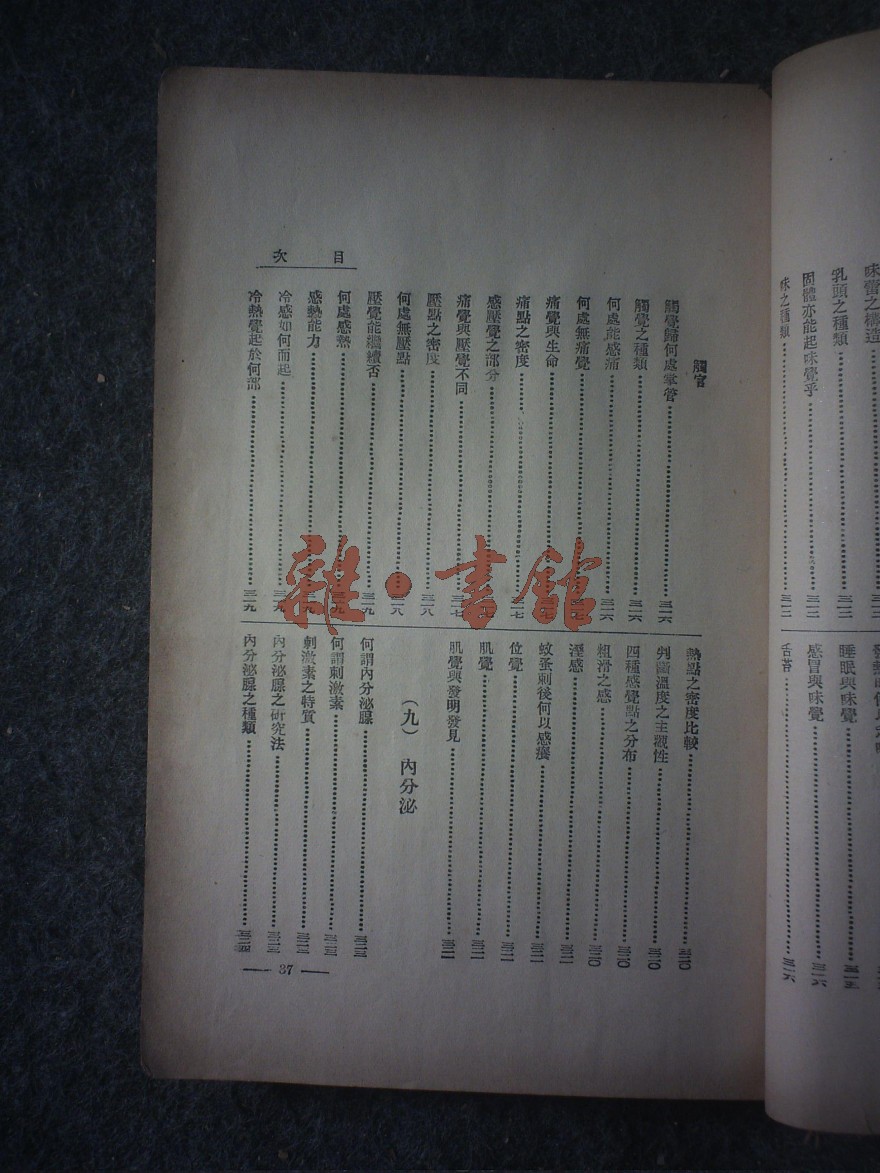 味蕾之構造
乳頭之種類……三一三
固體亦能起味覺乎……三一三
味之種類……三一三
睡眠與味覺
感冒與味覺
舌苔
目次
觸官
觸覺歸何處掌管……三一六
觸覺之種類……三一六
何處能感痛……三一六
何處無痛覺
痛覺與生命
痛點之密度……三一七
感壓覺之部分
痛覺與壓覺不同……三一七
壓點之密度……三一八
何處無壓點……三一八
壓覺能繼續否……三一九
何處感熱……三一九
感熱能力……三一九
冷感如何而起……三一九
冷熱覺起於何部……三一九
熱點之密度比較……三二〇
判斷溫度之主觀性……三二〇
四種感覺點之分布……三二〇
粗滑之感……三二〇
溼感……三二一
蚊蚤刺後何以感癢……三二一
位覺……三二一
肌覺……三二一
肌覺與發明發見……三二二
(九) 內分泌
何謂內分泌腺……三二三
何謂刺激素……三二三
刺激素之特質……三二三
內分泌腺之研究法……三二三
內分泌腺之種類……三二四
— 37 —
雜·書館